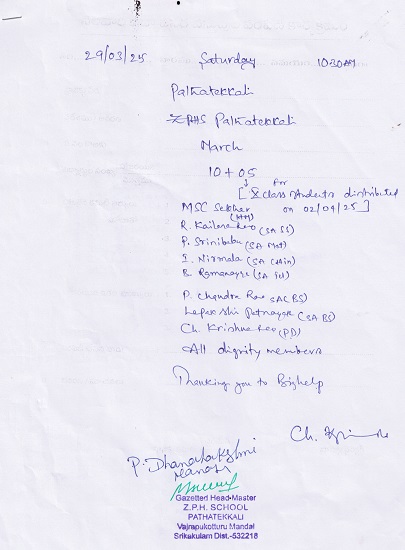 29/03/25 Saturday 10:30AM
Palhatekkali
ZPHS Palhatekkali
March
10 + 05
↓ for
[ X class students distributed
MSC Sekhar (HM) on 02/04/25 ]
R. Kailasa Rao (SA SS)
P. Srinibabu (SA Mat)
I. Nirmala (SA
B. Ramanayya (SA
P. Chandra Rao SA(BS)
Patnayak (SA BS)
Ch. Krishna Rao (PD)
All dignity members
Thanking you to Bighelp
Ch.
P. Dhanalakshmi
Gazetted Head-Master
Z.P.H. SCHOOL
PATHATEKKALI
Vajrapukotturu Mandal
Srikakulam Dist.-532218